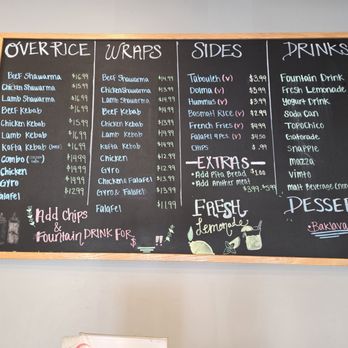 OVER RICE
Beef Shawarma $16.99
Chicken Shawarma $14.99
Lamb Shawarma $16.99
Beef Kebab
Chicken Kebab $15.99
Lamb Kebab $16.99
Kofta Kebab (beef) $16.99
Combo
Chicken $14.99
Gyro $14.99
Falafel $12.99
Add chips
& Fountain DRINK FOR $
WRAPS
Beef Shawarma $14.99
Chicken Shawarma
Lamb Shawarma $14.99
Beef Kebab
Chicken Kebab
Lamb Kebab
Kofta Kebab
Chicken $12.99
Gyro
Chicken & Falafel $13.99
Gyro & Falafel $13.99
Falafel $11.99
SIDES
Tabouleh (v) $3.99
Dolma (v) $3.99
Hummus (v) $3.99
Basmati Rice (v) $2.99
French Fries (v) $4.99
Falafel 4pcs (v) $4.50
Chips .99
EXTRAS
• Add Pita Bread $1.00
• Add another meat
$3.99-$5.99
FRESH
Lemonade
DRINKS
Fountain Drink
Fresh Lemonade
Yogurt Drink
Soda Can
TopoChico
Gatorade
Snapple
Mazza
Vimto
Malt Beverage
DESSE
• Baklava